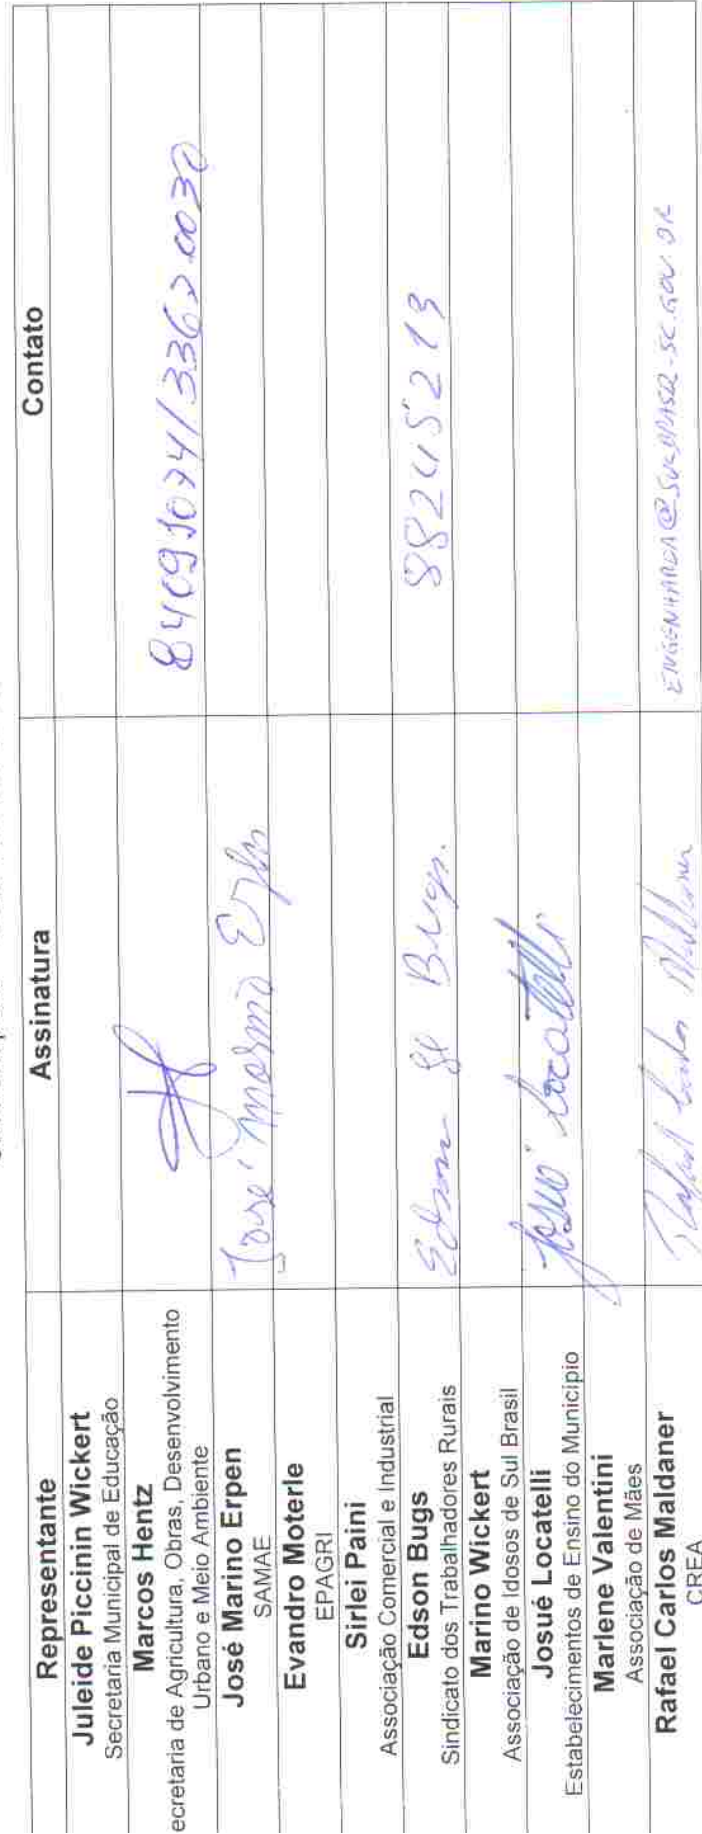 Representante Assinatura Contato
Juleide Piccinin Wickert
Secretaria Municipal de Educação
Marcos Hentz
ecretaria de Agricultura, Obras, Desenvolvimento
Urbano e Meio Ambiente
84091074/33670030
José Marino Erpen
SAMAE
José Marino Erpen
Evandro Moterle
EPAGRI
Sirlei Paini
Associação Comercial e Industrial
Edson Bugs
Sindicato dos Trabalhadores Rurais
Edson Bugs
88245213
Marino Wickert
Associação de Idosos de Sul Brasil
Josué Locatelli
Estabelecimentos de Ensino do Município
Josué Locatelli
Marlene Valentini
Associação de Mães
Rafael Carlos Maldaner
CREA
Rafael Carlos Maldaner